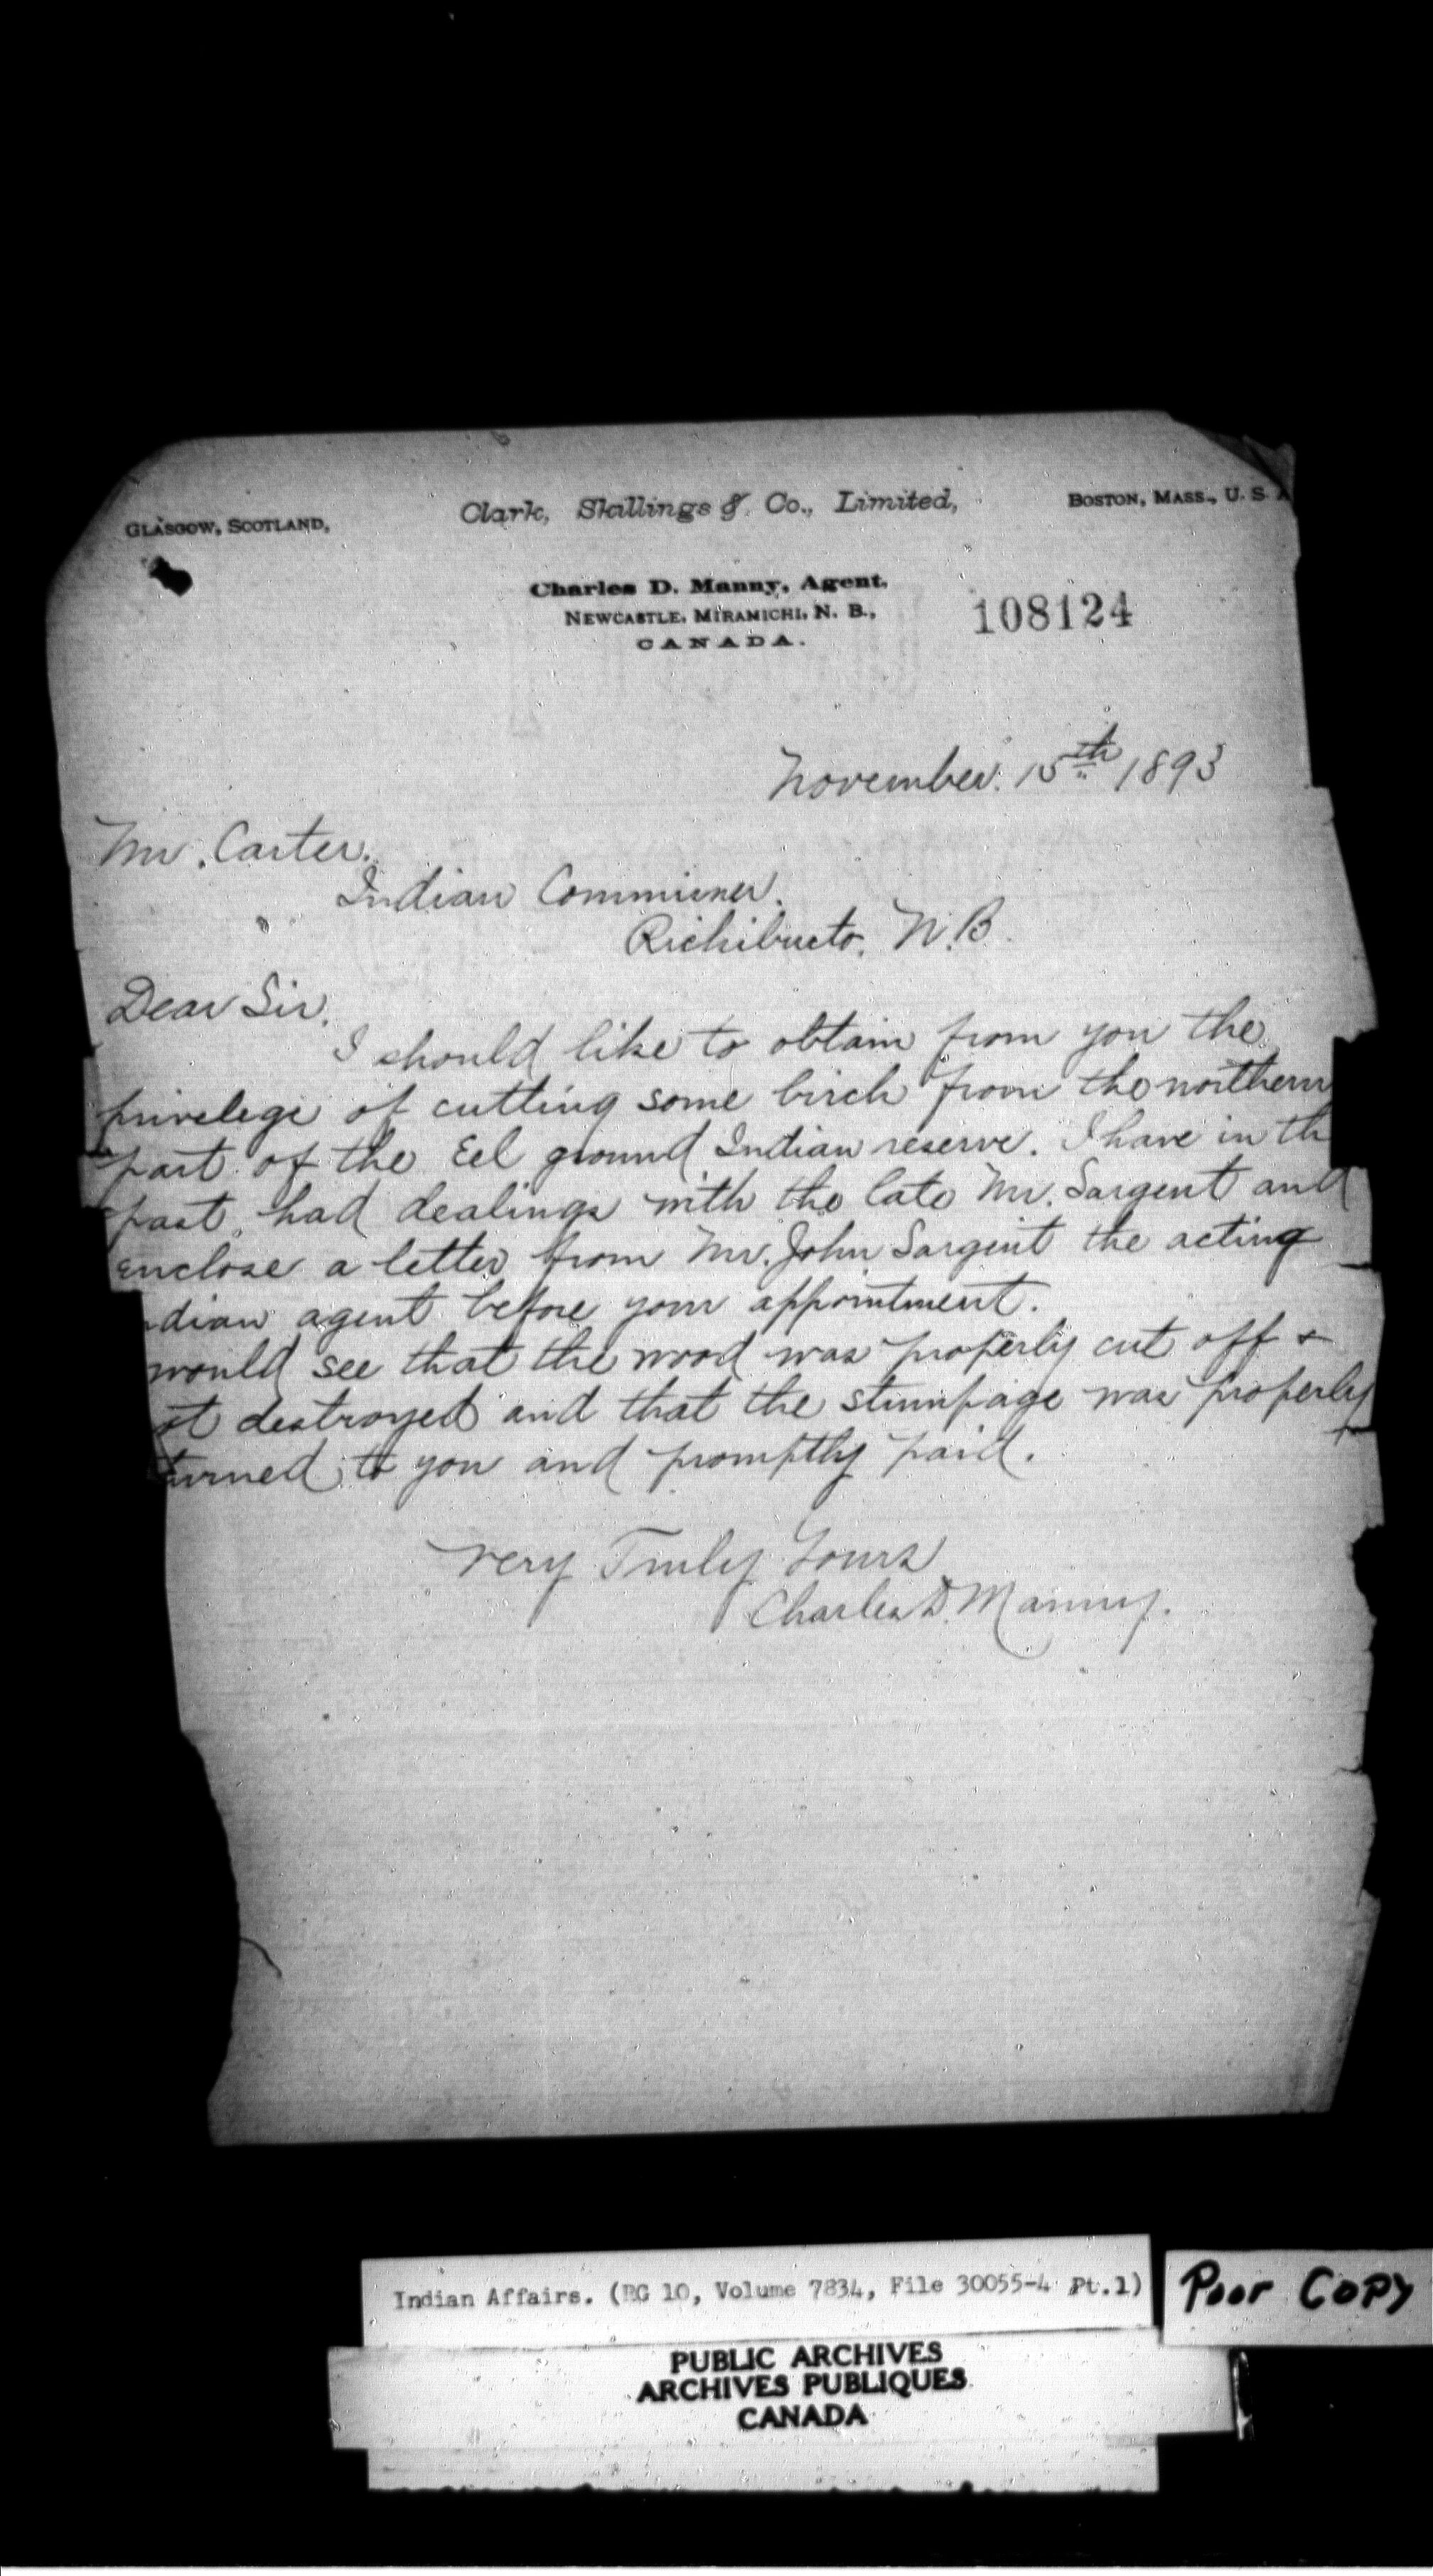 Glasgow, Scotland,
Clark, Skillings & Co., Limited,
Boston, Mass., U. S. A
Charles D. Manny, Agent.
Newcastle, Miramichi, N. B.,
CANADA.
108124
November. 15th 1893
Mr. Carter.
Indian Commisner.
Richibucto, N.B.
Dear Sir,
I should like to obtain from you the
privelege of cutting some birch from the northern
part of the Eel ground Indian reserve. I have in th
past, had dealings with the late Mr. Sargent and
enclose a letter from Mr. John Sargent the acting
ndian agent before your appointment.
would see that the wood was properly cut off +
ot destroyed and that the stumpage was properly
turned to you and promptly paid.
Very Truly Yours
Charles D. Manny.
Indian Affairs. (RG 10, Volume 7834, File 30055-4 Pt.1)
Poor Copy
PUBLIC ARCHIVES
ARCHIVES PUBLIQUES
CANADA